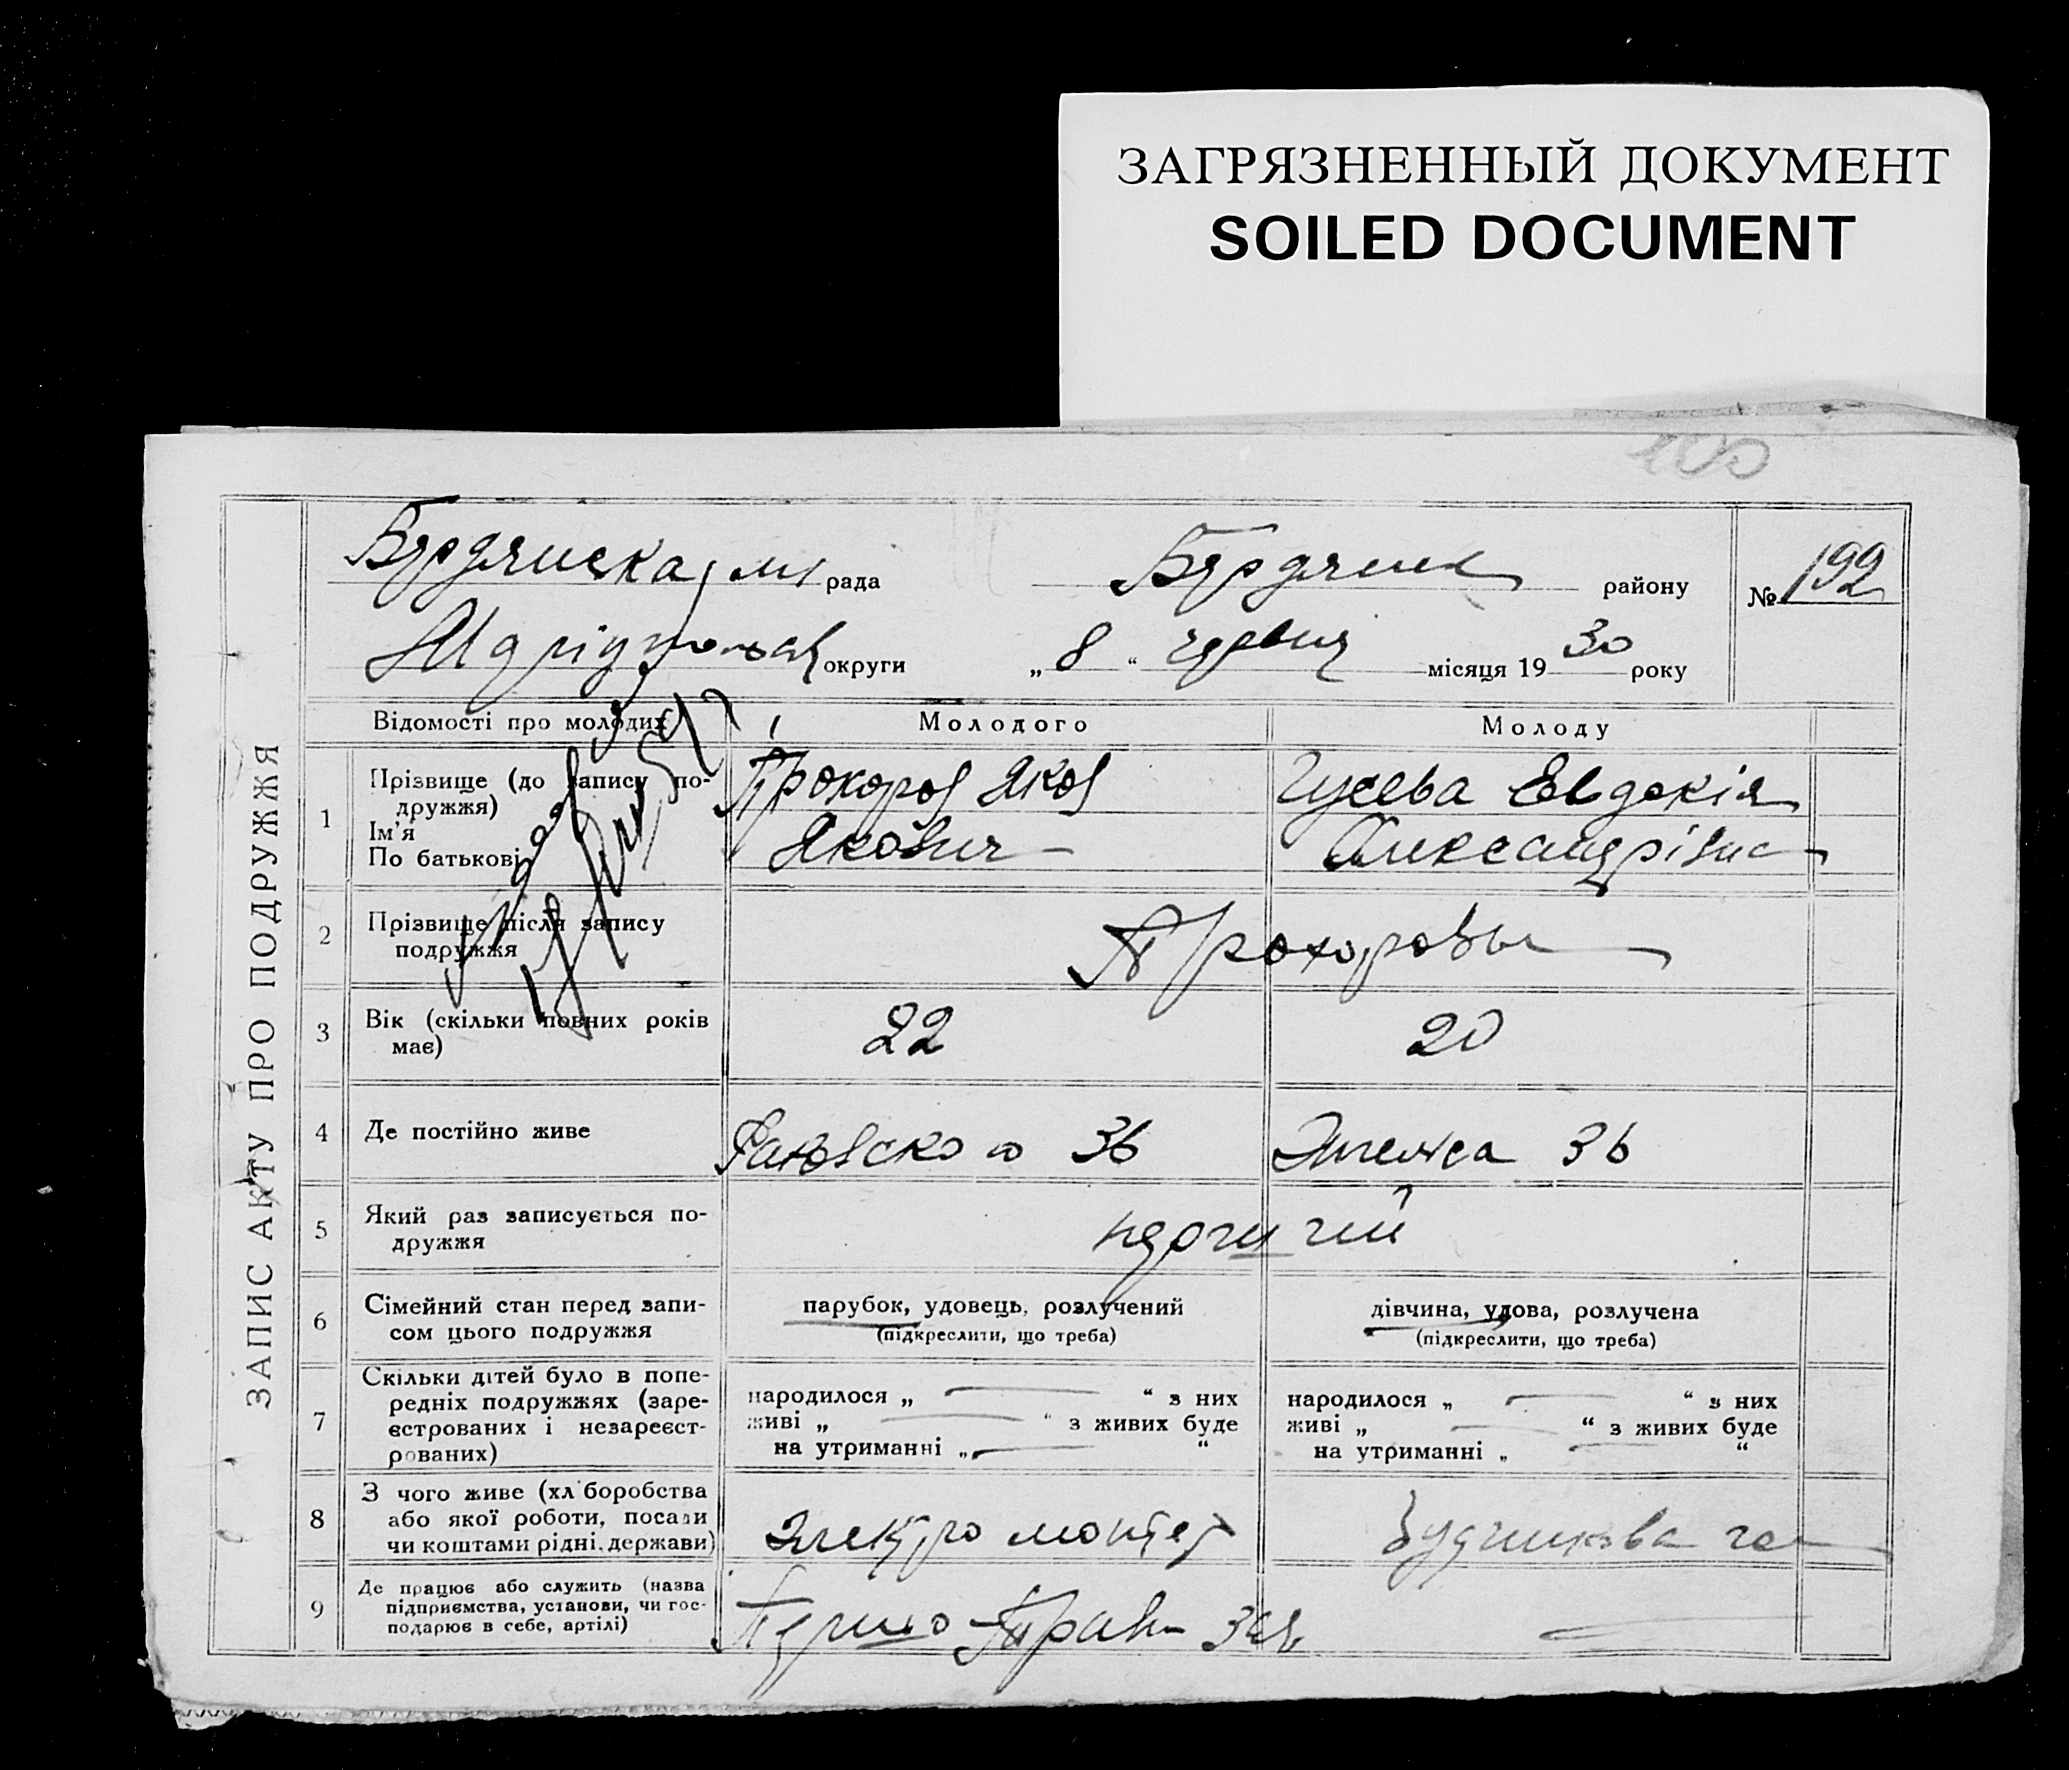 ЗАГРЯЗНЕННЫЙ ДОКУМЕНТ
SOILED DOCUMENT
100
Бердянська рада
Бердянськ району
№ 192
Маріупольськ округи
„ 8 “ червня місяця 19 30 року
ЗАПИС АКТУ ПРО ПОДРУЖЖЯ
Відомості про молодих
Молодого
Молоду
1
Прізвище (до запису по-
дружжя)
Ім’я
По батькові
Прохоров Яков
Якович
Гусева Евдокія
Александрівна
2
Прізвище після запису
подружжя
Прохоровы
3
Вік (скільки повних років
має)
22
20
4
Де постійно живе
36
Энгельса 36
5
Який раз записується по-
дружжя
6
Сімейний стан перед запи-
сом цього подружжя
парубок, удовець, розлучений
(підкреслити, що треба)
дівчина, удова, розлучена
(підкреслити, що треба)
7
Скільки дітей було в попе-
редніх подружжях (заре-
єстрованих і незареєст-
рованих)
народилося „ “ з них
живі „ “ з живих буде
на утриманні „ “
народилося „ “ з них
живі „ “ з живих буде
на утриманні „ “
8
З чого живе (хліборобства
або якої роботи, посади
чи коштами рідні, держави)
электро монтер
9
Де працює або служить (назва
підприємства, установи, чи гос-
подарює в себе, артілі)
Першо Трав